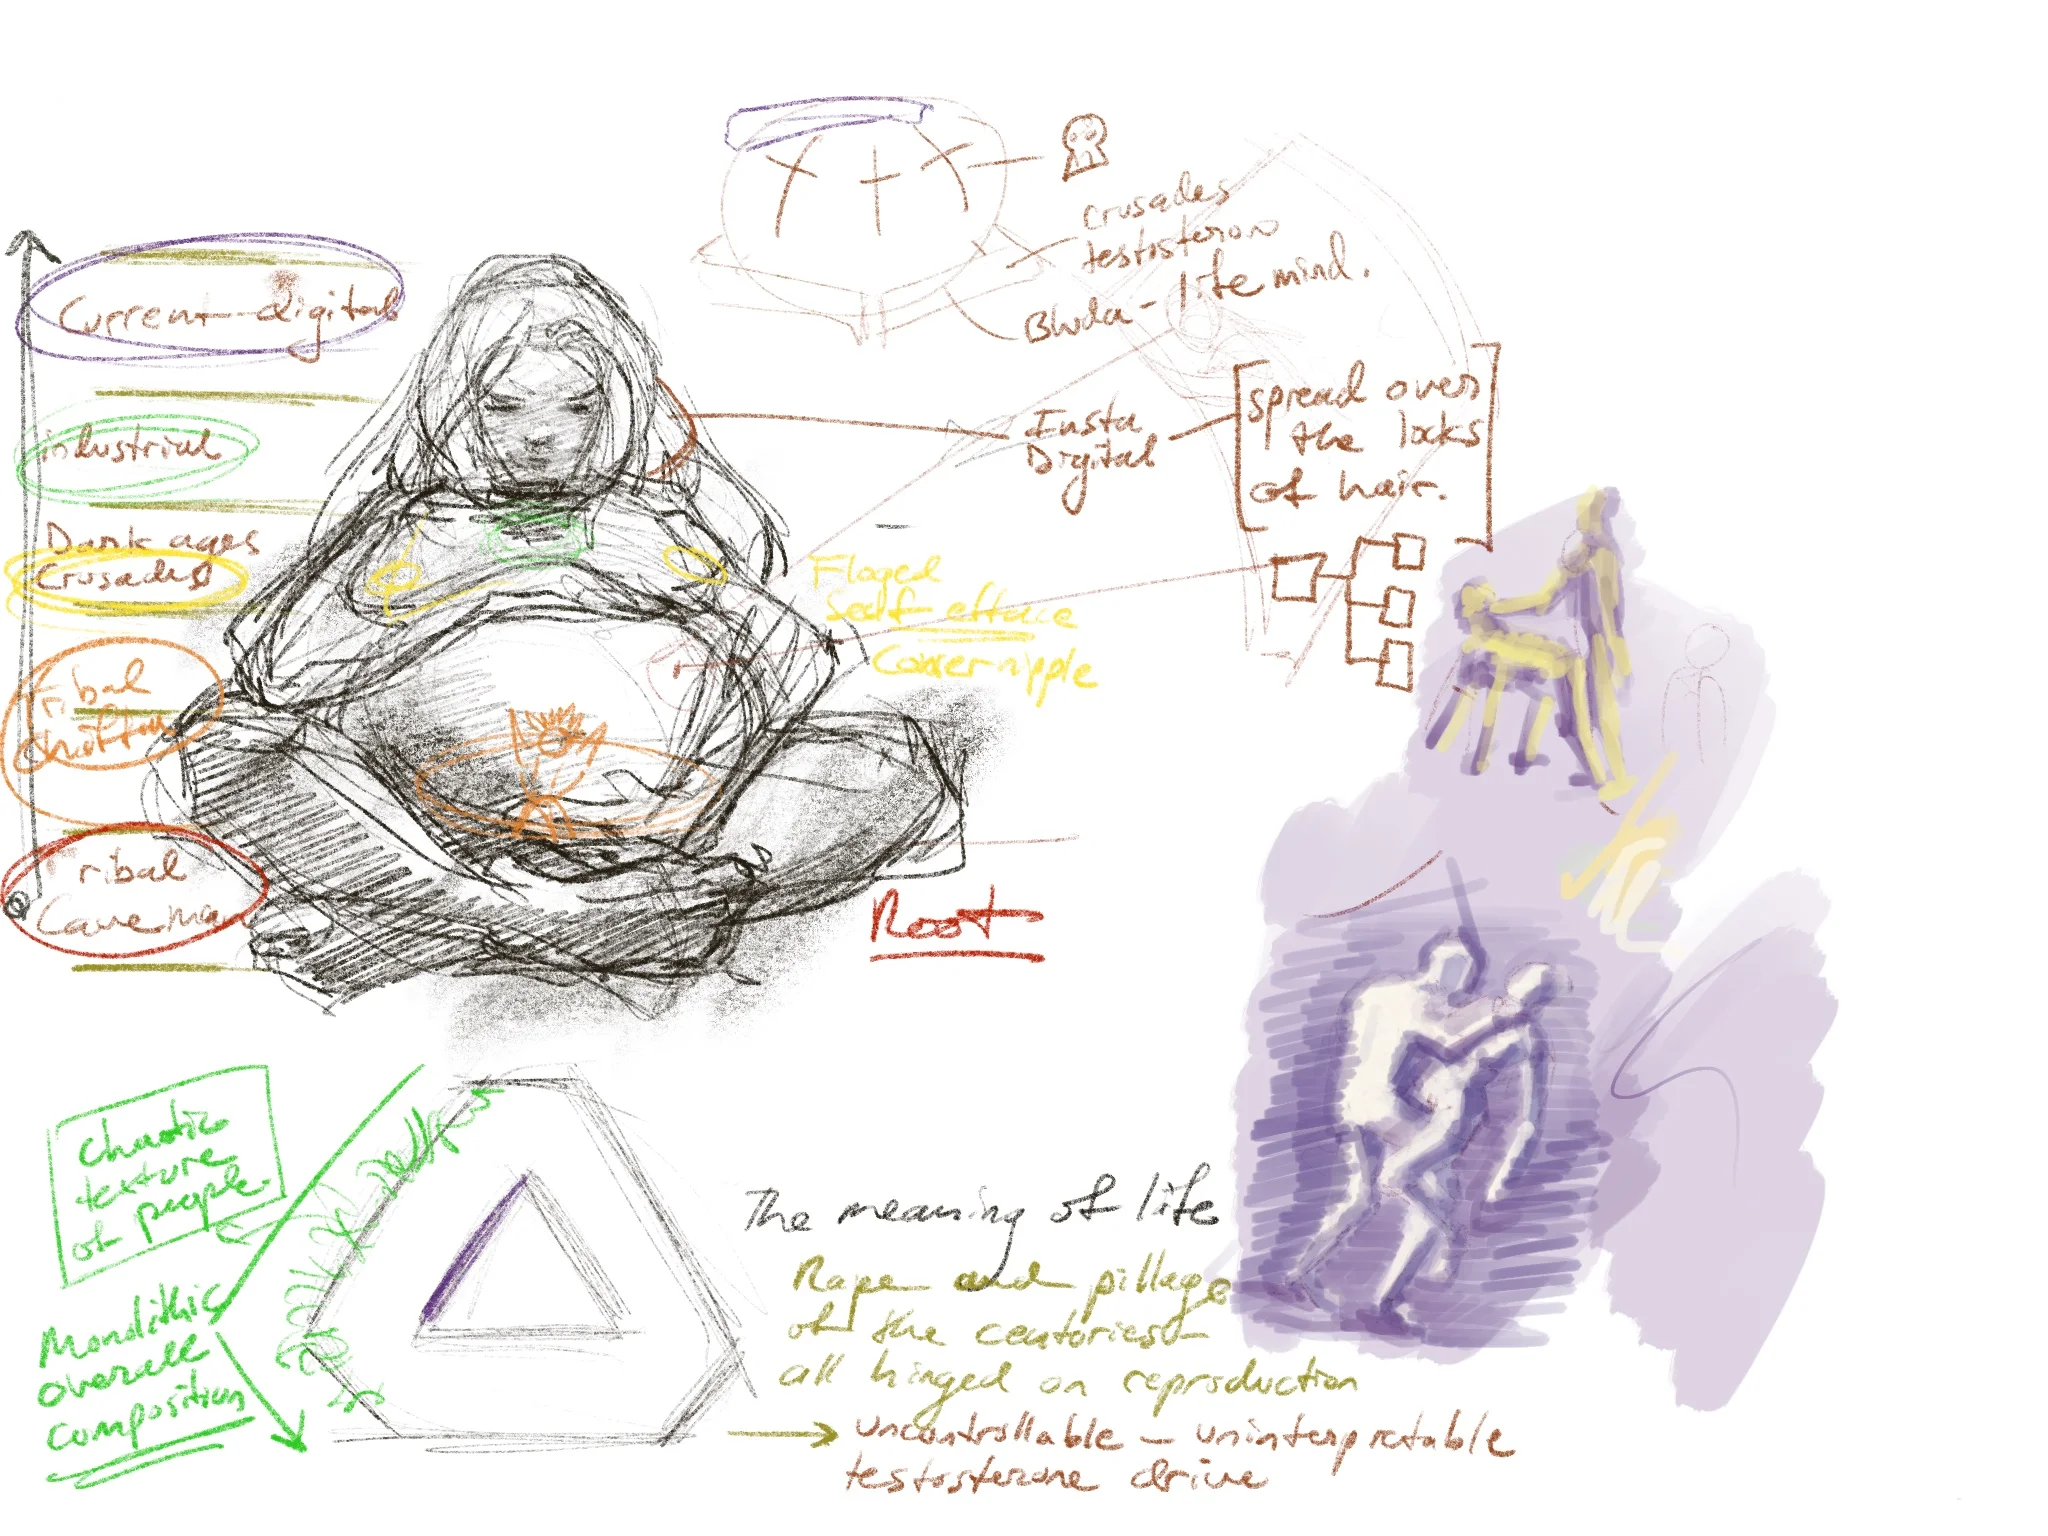 Current digital
industrial
Dark ages
Crusades
Tribal
ribal
Caveman
crusades
testosteron
life mind.
Insta
Digital
spread over
the locks
of hair.
Floged
Self efface
Cover nipple
Root
chaotic
texture
of people.
Monolithic
overall
composition
The meaning of life
Rape and pillage
of the centories
all hinged on reproduction
uncontrollable — uninterpretable
testosterone drive